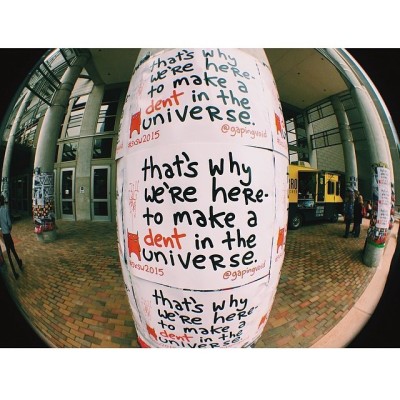 that's why
we're here-
to make a
dent in the
universe.
@gapingvoid
that's why
we're here-
to make a
dent in the
universe.
@gapingvoid
that's why
we're here-
to make a
dent in the
universe.